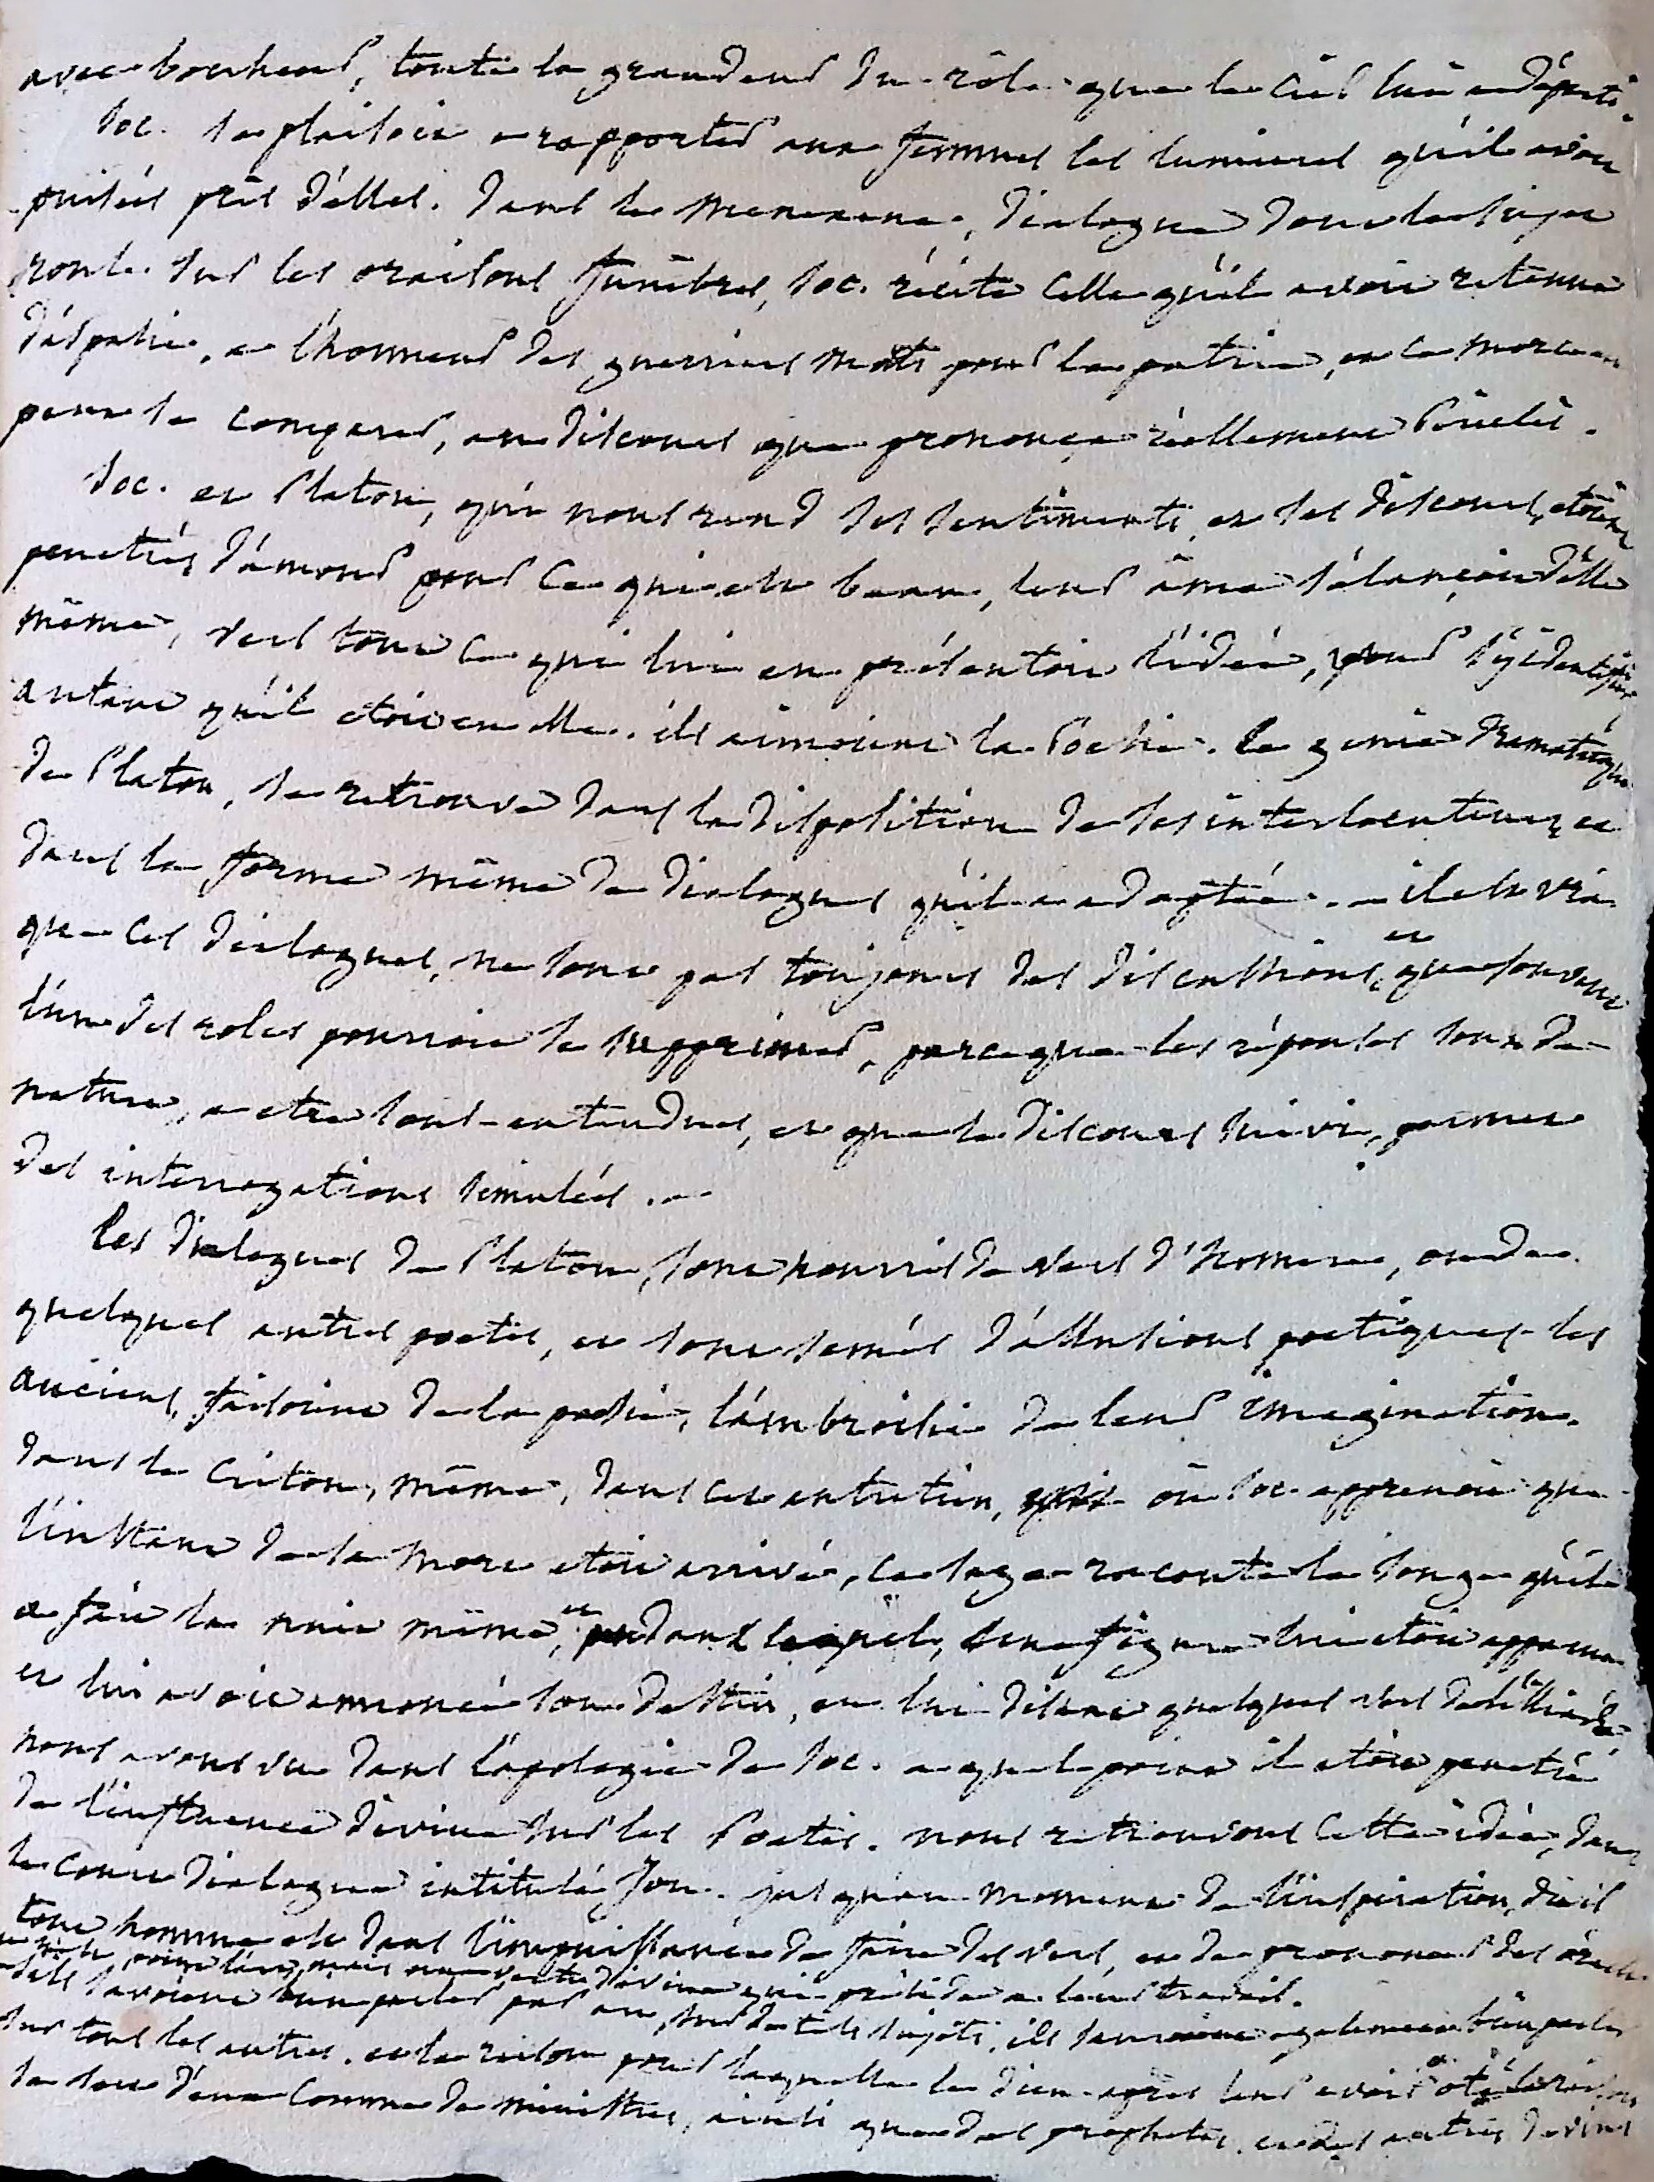 avec bonheur, toute la grandeur du rôle que le Ciel lui a départi.
Soc. se plaisoit a rapporter aux femmes les lumieres qu'il avoit
puisées près d'elles. dans le Menexene, dialogue dont le sujet
roule sur les oraisons funèbres, Soc. récite celle qu'il avoit retenue
d'aspasie, a l'honneur des guerriers morts pour la patrie, et ce morceau
peut se comparer, au discours que prononça réellement Périclès.
Soc. et Platon, qui nous rend ses sentiments, et ses discours, etoient
penetrés d'amour pour ce qui est beau, leur âme s'élançoit d'elle
même, vers tout ce qui lui en présentoit l'idée, pour s'y identifier
autant qu'il etoit en elle. ils aimoient la Poesie. le genie dramatique
de Platon, se retrouve dans la disposition de ses interlocuteurs, et
dans la forme même de dialogues qu'il a adoptée. - il est vrai
que ces dialogues, ne sont pas toujours des discussions, et que souvent
l'un des roles pourroit se supprimer, parce que les réponses sont de
nature, a etre sous-entendues, et que le discours suivi, permet
des interrogations simulées. -
Les dialogues de Platon, sont nourris de vers d'homere, ou de
quelques autres poetes, et sont semés d'allusions poetiques. les
anciens, faisoient de la poesie, l'ambroisie de leur imagination.
dans le Criton, même, dans cet entretien, où Soc. apprenoit que
l'instant de sa mort etoit arrivé, ce sage raconte le songe qu'il
a fait la nuit même, et dans lequel, une figure lui etoit apparue
et lui avoit annoncé son destin, en lui disant quelques vers de l'Iliade.
nous avons vu dans l'apologie de Soc. a quel point il etoit penetré
de l'influence divine sur les Poetes. nous retrouvons cette idée, dans
le court dialogue intitulé Jon. jusqu'au moment de l'inspiration, dit il
tout homme est dans l'impuissance de faire des vers, et de prononcer des oracles
ce n'est point l'art, mais une vertu divine qui préside a leur travail.
s'ils savoient bien parler par art, sur de tels sujets, ils sauroient egalement bien parler
sur tous les autres. et la raison pour laquelle le dieu après leur avoir oté la raison
se sert d'eux comme de ministres, ainsi que des prophetes, et des autres devins